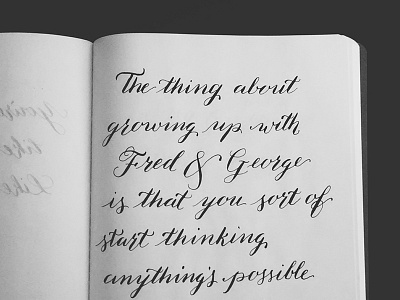 The thing about
growing up with
Fred & George
is that you sort of
start thinking
anything's possible